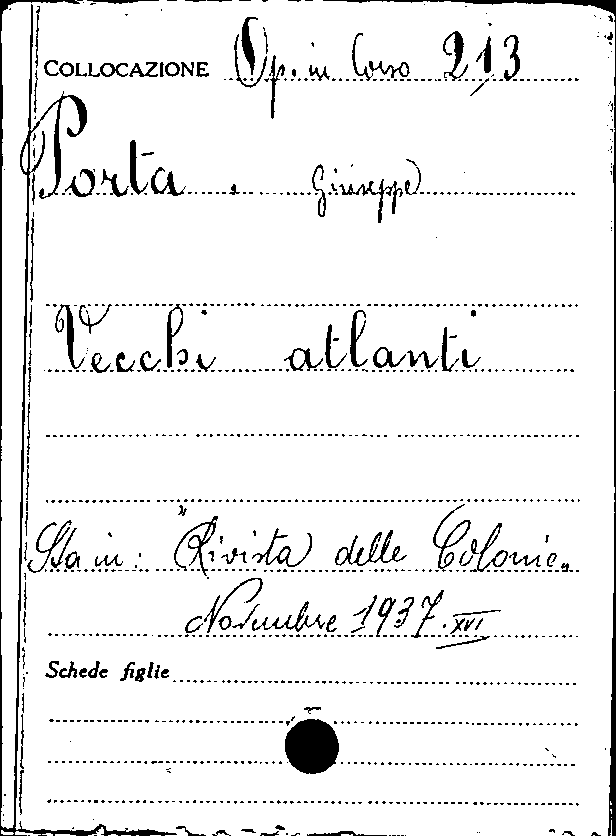 COLLOCAZIONE Op. in Corso 213
Porta . Giuseppe
Vecchi atlanti
Sta in: "Rivista delle Colonie„
Novembre 1937.XVI
Schede figlie